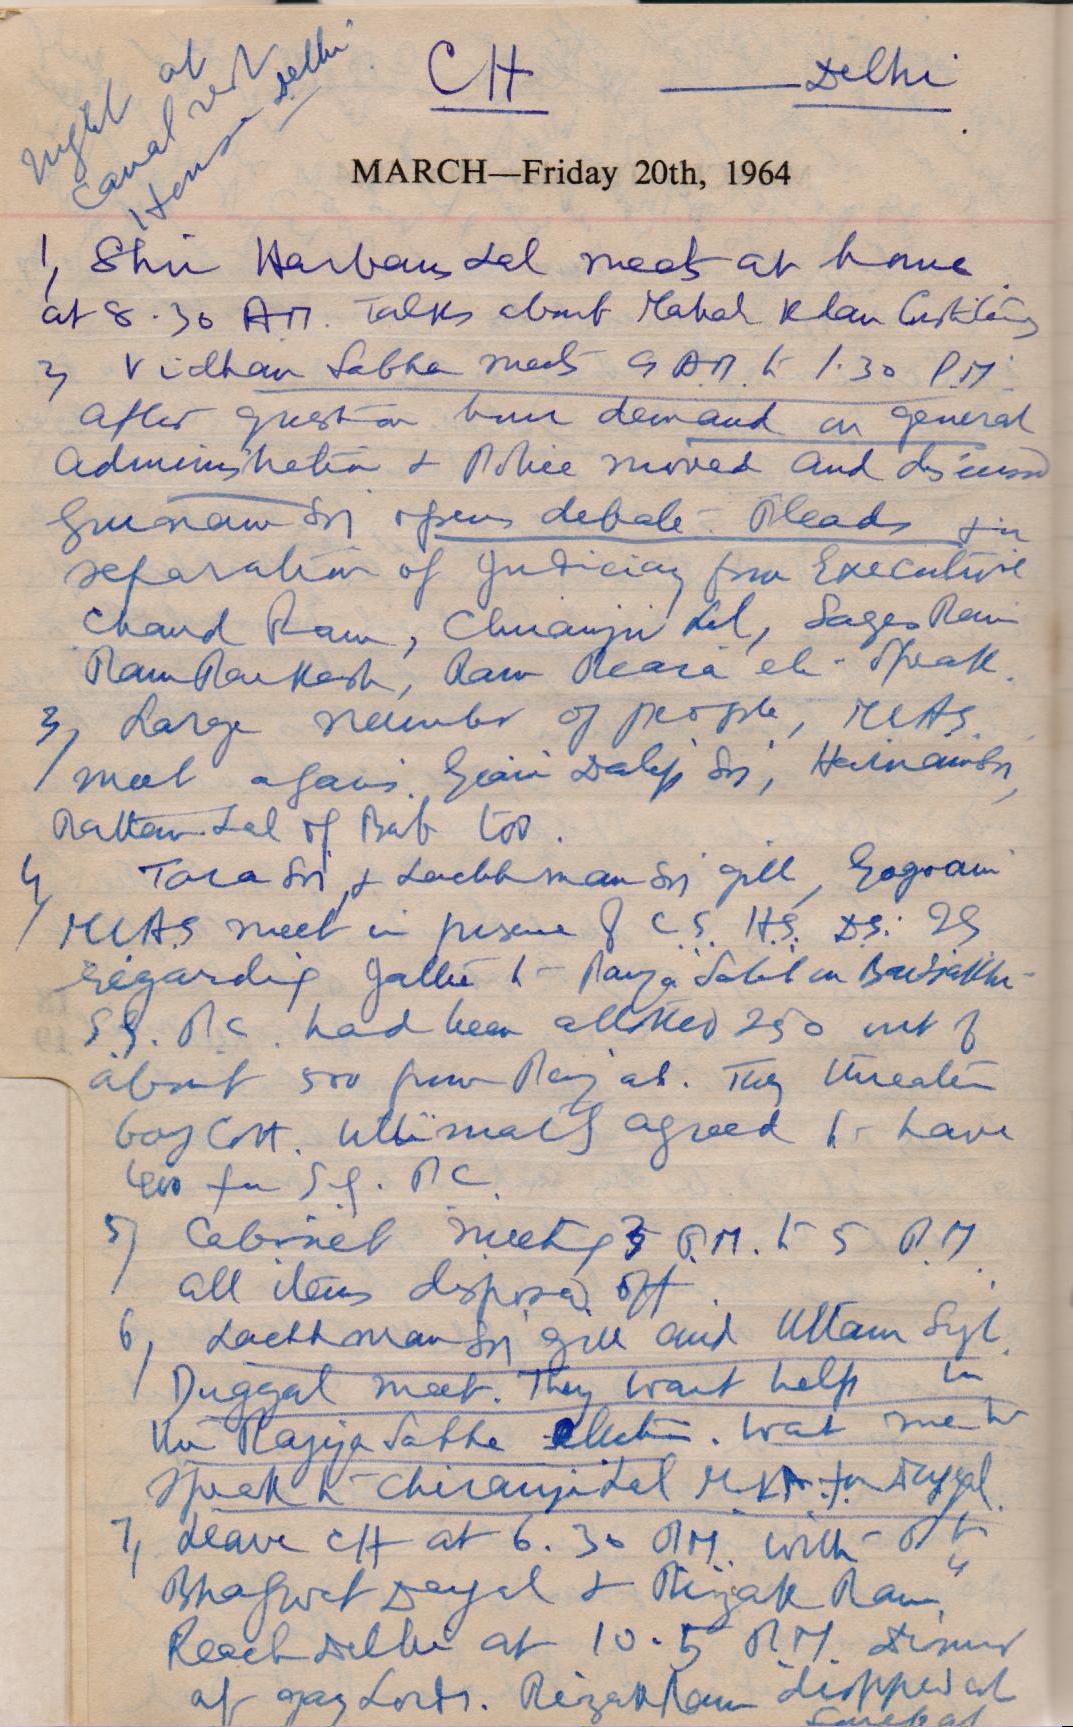 Night at
Canal rest
House Delhi
CH ——— Delhi
MARCH—Friday 20th, 1964
1, Shri Harbans Lal meets at home
at 8.30 AM. Talks about Mahal Khan
2, Vidhan Sabha meets 9 A.M. to 1.30 P.M.
After question hour demand on general
Administration & Police moved and discussed
Gurnam Sn opens debate. Pleads for
separation of Judiciary from Executive
Chand Ram, Chiranji Lal, Sagar Ram
Ram Parkash, Ram Piara etc. speak.
3, Large number of people, MLAS.
meet again. Giani Dalip Sn, Harnam Sn,
Rattan Lal of Bab too.
4, Tara Sn, & Lachhman Sn gill, Gogoani
MLAS meet in presence of C.S. H.S. D.S. IG
regarding Jatha to Panja Sahib on Baisakhi
S.G.P.C. had been allotted 250 out of
about 500 from Punjab. They threaten
boycott. Ultimately agreed to have
400 for S.G.P.C.
5, Cabinet meeting 3 P.M. to 5 P.M.
all items disposed off.
6, Lachhman Sn gill and Uttam Sgh.
Duggal meet. They want help in
the Rajya Sabha election. Want me to
speak to Chiranji Lal MLA for Duggal.
7, Leave CH at 6.30 P.M. with Pt.
Bhagwat Dayal & Rizak Ram.
Reach Delhi at 10.5 P.M. Dinner
at gay Lords. Rizak Ram dropped at
Sonepat